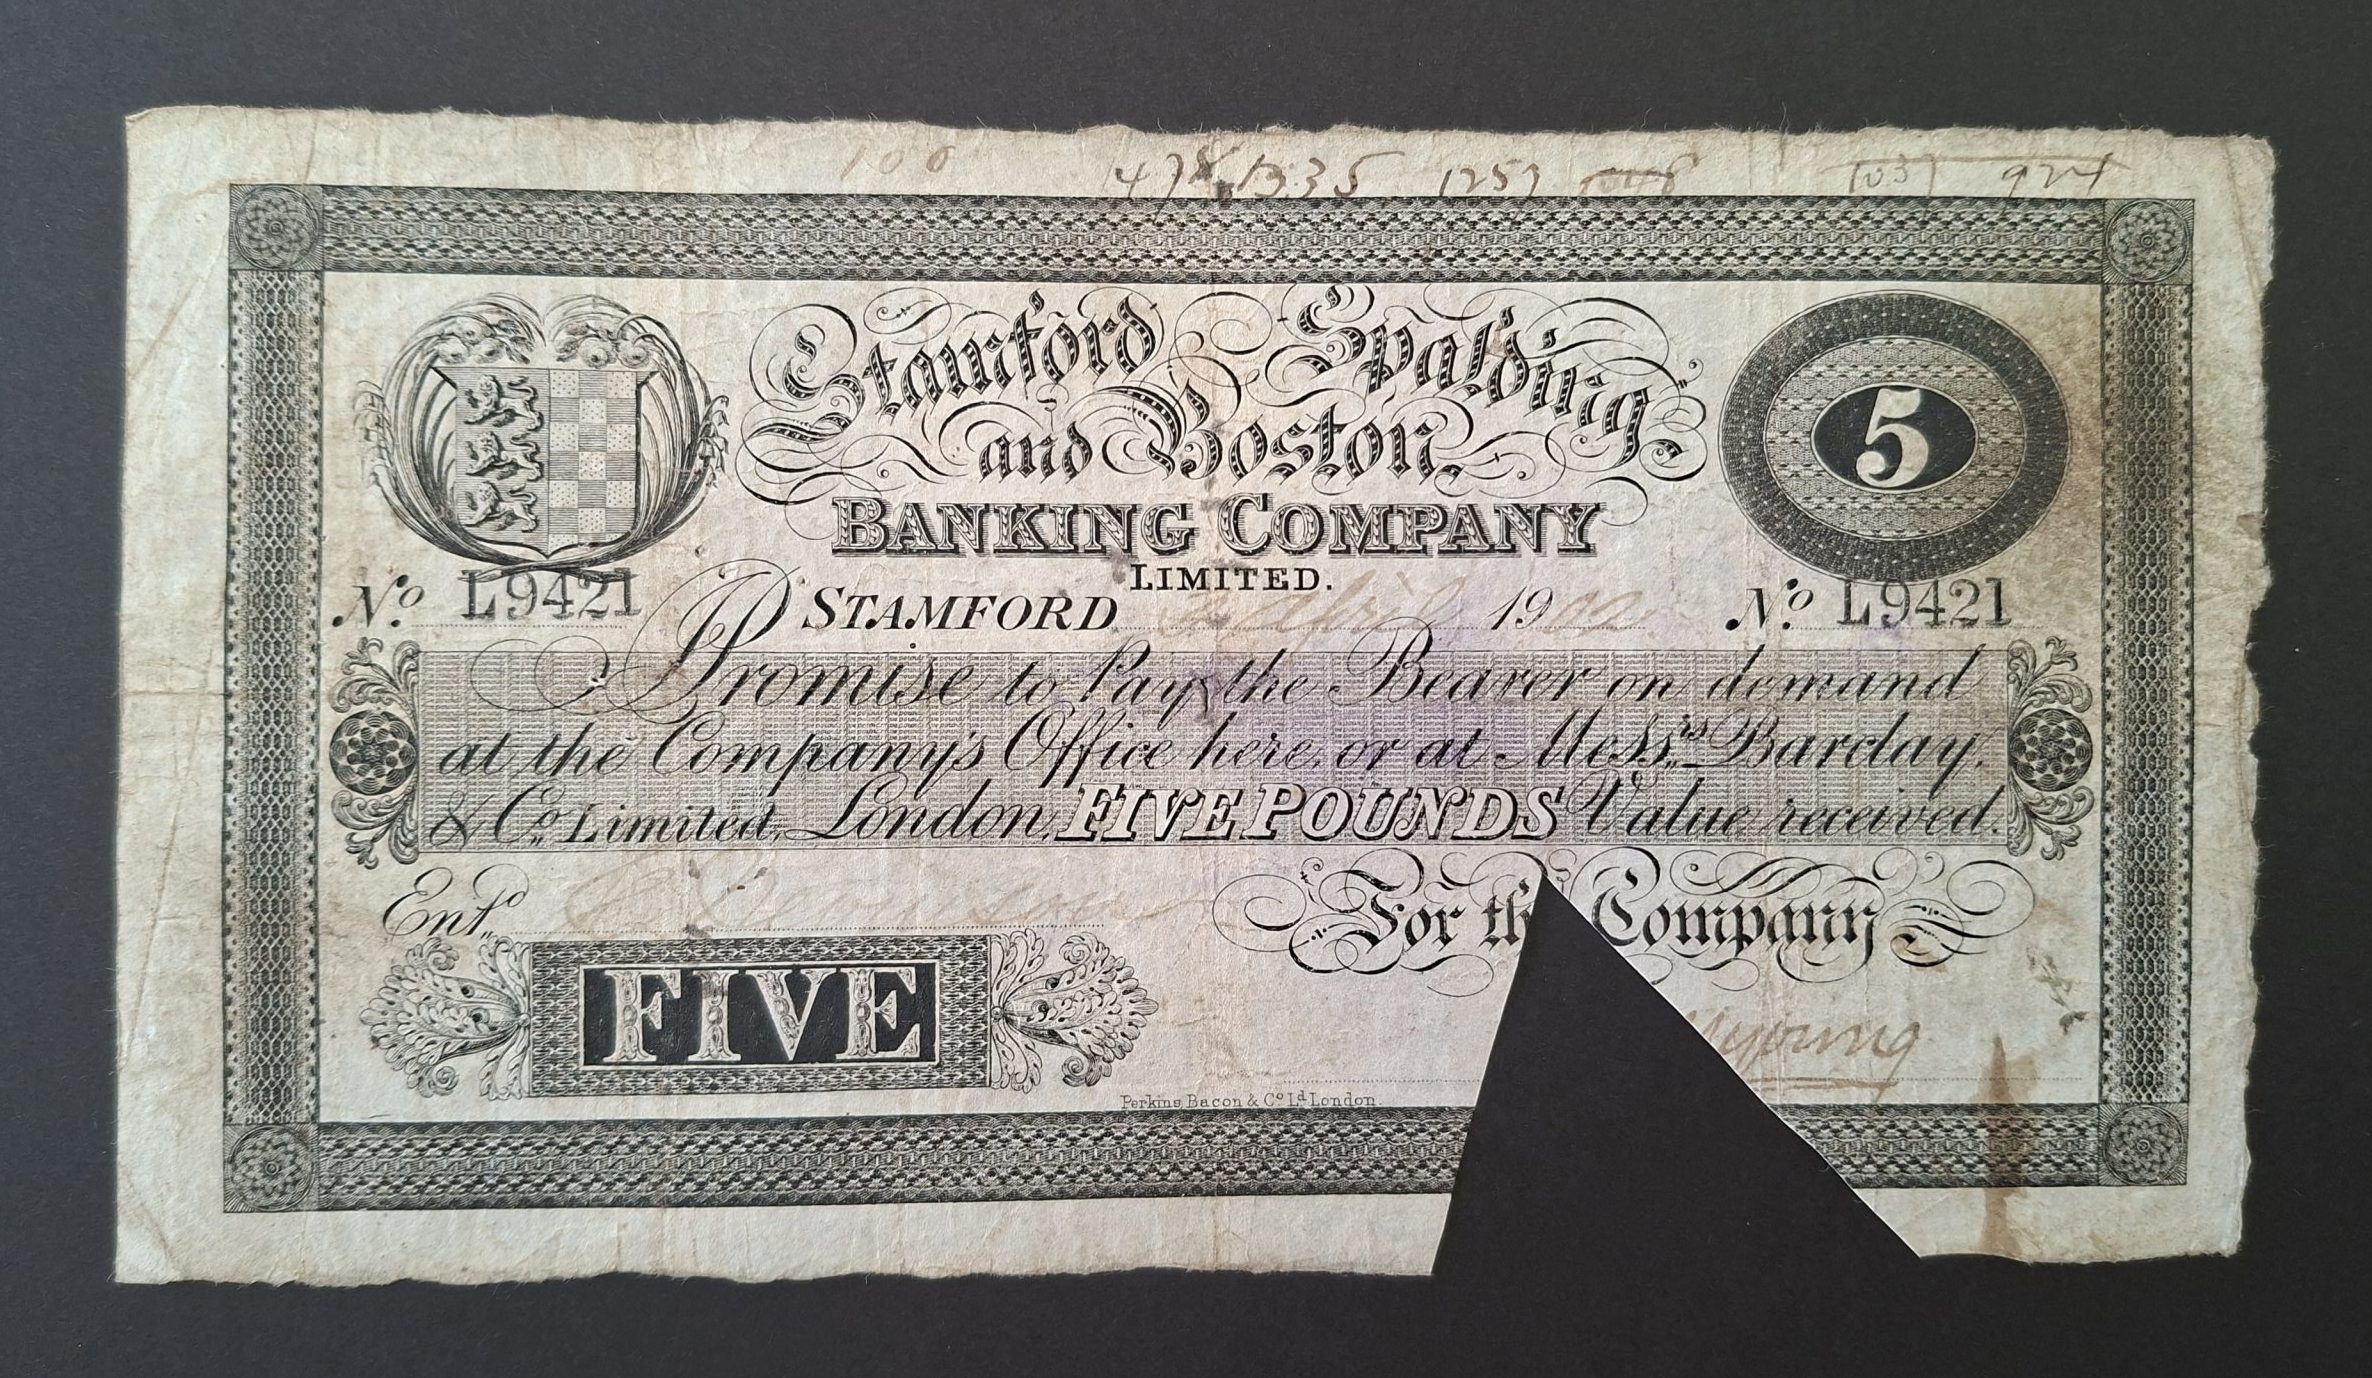 100 1335 1257 1048 1037 924
Stamford Spalding
and Boston
BANKING COMPANY
LIMITED.
No. L9421 STAMFORD April 1902. No. L9421
I Promise to Pay the Bearer on demand
at the Company's Office here, or at Messrs. Barclay,
& Co. Limited, London, FIVE POUNDS Value received.
Entd. For th Company
5
FIVE
young
Perkins, Bacon & Co. Ld. London.